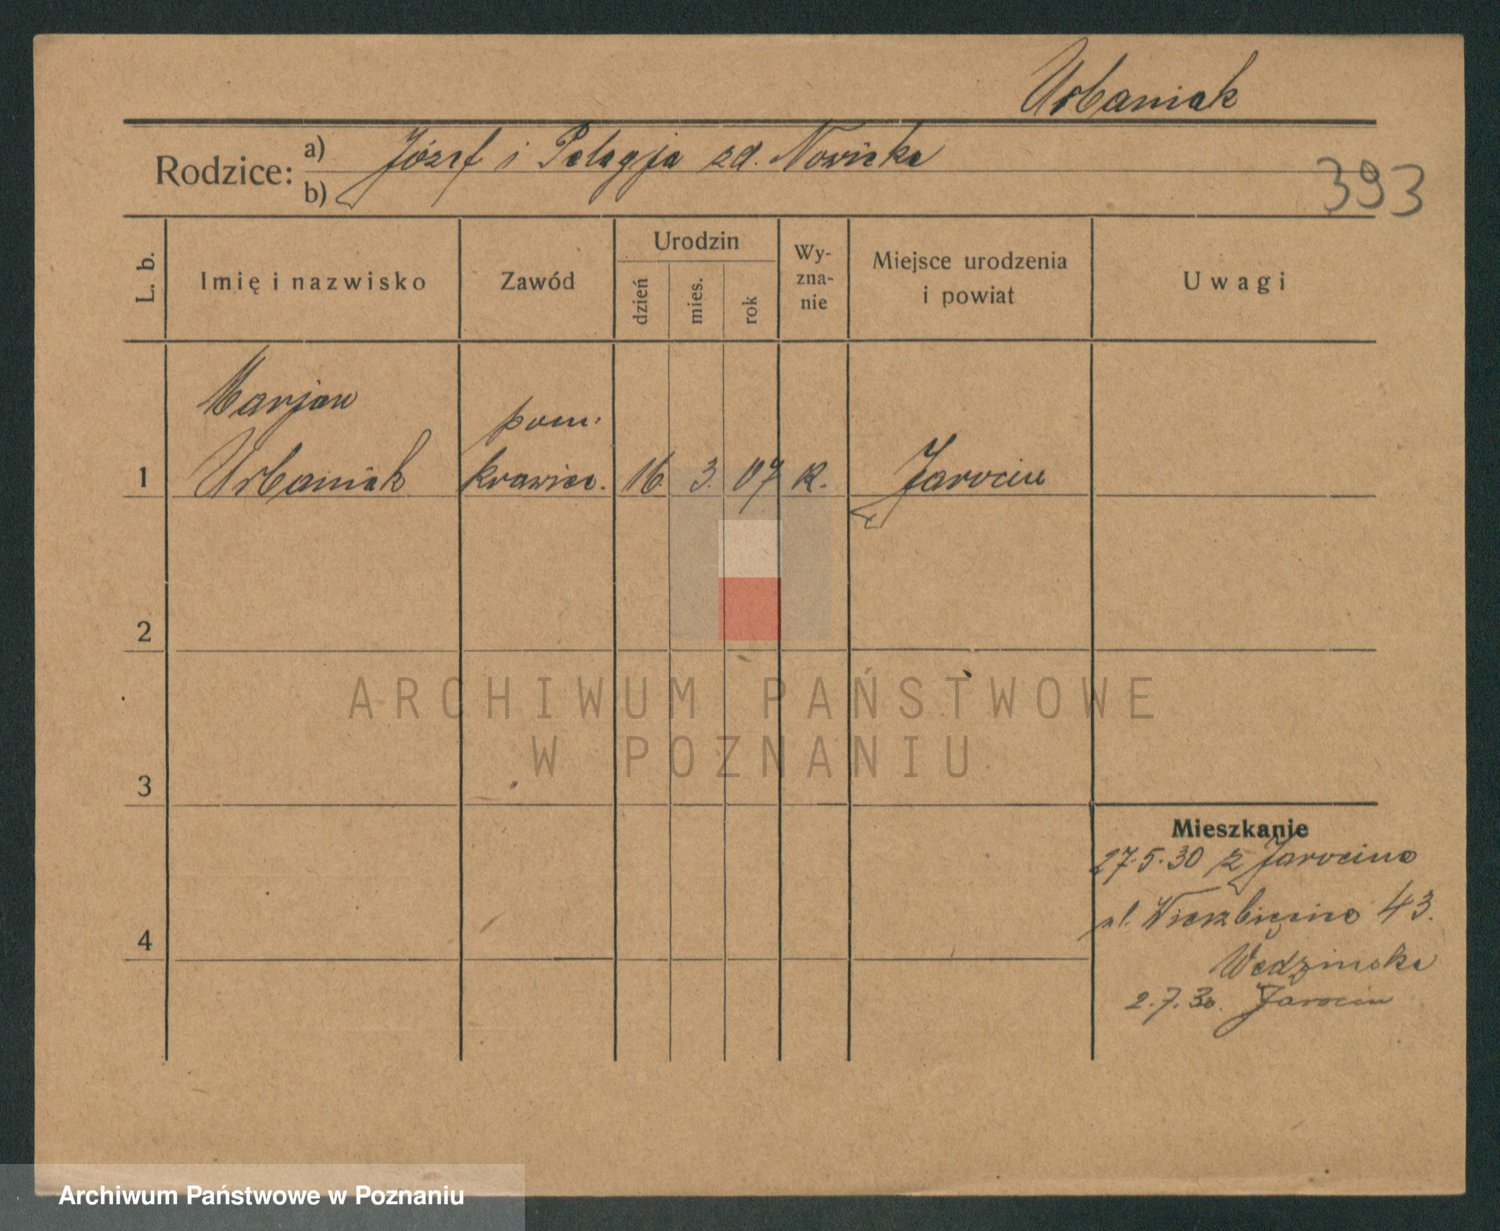 Urbaniak
Rodzice: a) Józef i Pelagja zd. Nowicka
b)
393
L. b.
Imię i nazwisko
Zawód
Urodzin
dzień
mies.
rok
Wy-
zna-
nie
Miejsce urodzenia
i powiat
Uwagi
Marjan
pom.
1 Urbaniak krawiec. 16 3. 07 k. Jarocin
2
ARCHIWUM PAŃSTWOWE
W POZNANIU
3
Mieszkanie
27.5.30 z Jarocina
ul. Wierzbięcice 43.
4
2.7.30. Jarocin
Archiwum Państwowe w Poznaniu